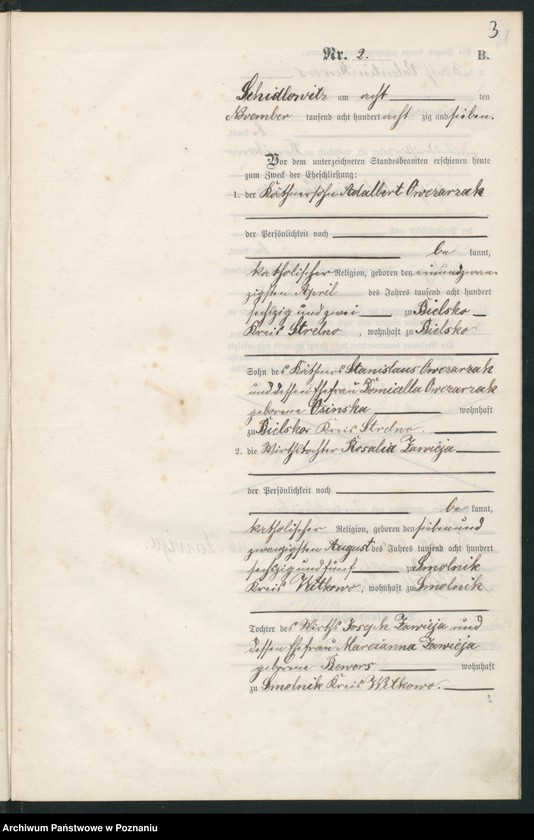 3
Nr. 2. B.
Schidlowitz am acht ten
November tausend acht hundert acht zig und sieben.
Vor dem unterzeichneten Standesbeamten erschienen heute
zum Zweck der Eheschließung:
1. der Käthnersohn Adalbert Owczarzak
der Persönlichkeit nach
be kannt,
katholischer Religion, geboren den einundzwan-
zigsten April des Jahres tausend acht hundert
sechzig und zwei zu Bielsko
Kreis Strelno, wohnhaft zu Bielsko
Sohn des Käthners Stanislaus Owczarzak
und dessen Ehefrau Domicella Owczarzak
geborene Osinska wohnhaft
zu Bielsko Kreis Strelno.
2. die Wirthstochter Rosalia Zawieja
der Persönlichkeit nach
be kannt,
katholischer Religion, geboren den sieben und
zwanzigsten August des Jahres tausend acht hundert
sechzig und fünf zu Smolnik
Kreis Witkowo, wohnhaft zu Smolnik
Tochter des Wirths Joseph Zawieja und
dessen Ehefrau Marcianna Zawieja
geborene Kowors wohnhaft
zu Smolnik Kreis Witkowo.
Archiwum Państwowe w Poznaniu